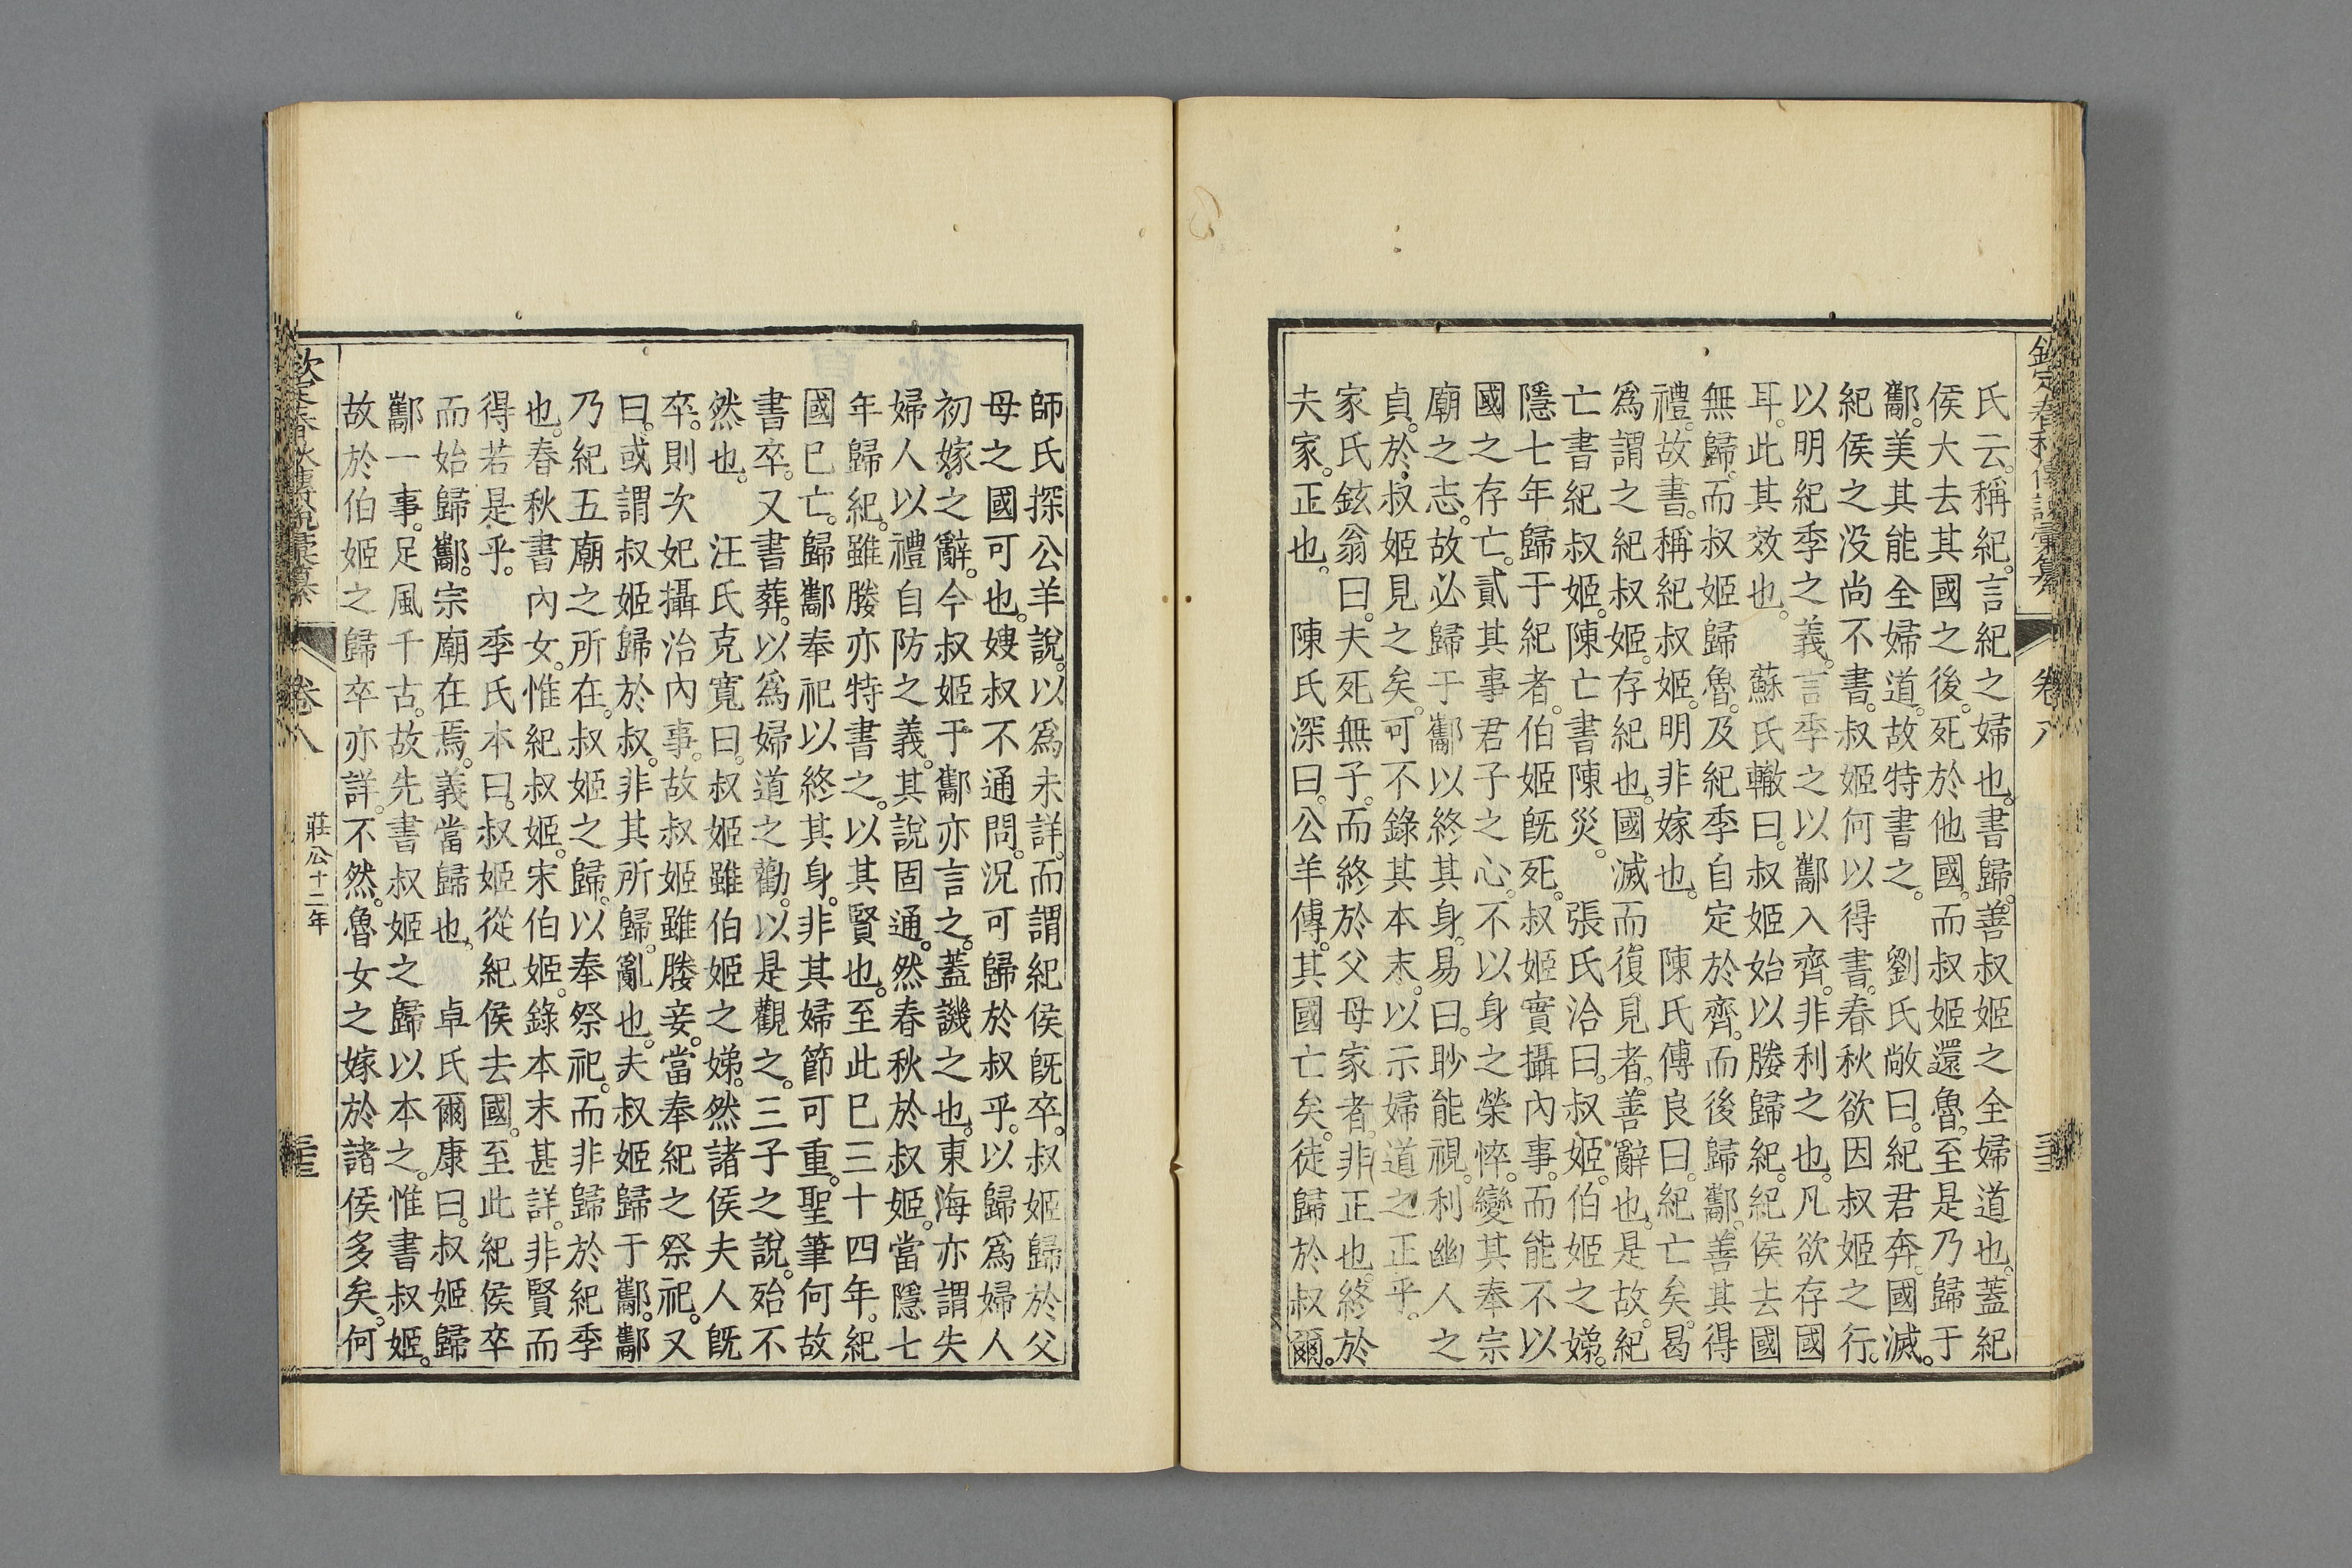 欽定春秋傳說彙纂
卷八
氏云。稱紀。言紀之婦也。書歸。善叔姬之全婦道也。蓋紀
侯大去其國之後。死於他國。而叔姬還魯。至是乃歸于
酅。美其能全婦道。故特書之。劉氏敞曰。紀君奔。國滅。
紀侯之没尚不書。叔姬何以得書。春秋欲因叔姬之行。
以明紀季之義。言季之以酅入齊。非利之也。凡欲存國
耳。此其效也。蘇氏轍曰。叔姬始以媵歸紀。紀侯去國
無歸。而叔姬歸魯。及紀季自定於齊。而後歸酅。善其得
禮。故書。稱紀叔姬。明非嫁也。陳氏傅良曰。紀亡矣。曷
爲謂之紀叔姬。存紀也。國滅而復見者。善辭也。是故。紀
亡書紀叔姬。陳亡書陳災。張氏洽曰。叔姬。伯姬之娣。
隱七年歸于紀者。伯姬旣死。叔姬實攝內事。而能不以
國之存亡。貳其事君子之心。不以身之榮悴。變其奉宗
廟之志。故必歸于酅以終其身。易曰。眇能視。利幽人之
貞。於叔姬見之矣。可不錄其本末。以示婦道之正乎。
家氏鉉翁曰。夫死無子。而終於父母家者。非正也。終於
夫家。正也。陳氏深曰。公羊傳。其國亡矣。徒歸於叔爾。
師氏探公羊說。以爲未詳。而謂紀侯旣卒。叔姬歸於父
母之國可也。嫂叔不通問。況可歸於叔乎。以歸爲婦人
初嫁之辭。今叔姬于酅亦言之。蓋譏之也。東海亦謂失
婦人以禮自防之義。其說固通。然春秋於叔姬。當隱七
年歸紀。雖媵亦特書之。以其賢也。至此已三十四年。紀
國已亡。歸酅奉祀以終其身。非其婦節可重。聖筆何故
書卒。又書葬。以爲婦道之勸。以是觀之。三子之說。殆不
然也。汪氏克寬曰。叔姬雖伯姬之娣。然諸侯夫人旣
卒。則次妃攝治內事。故叔姬雖媵妾。當奉紀之祭祀。又
曰。或謂叔姬歸於叔。非其所歸。亂也。夫叔姬歸于酅。酅
乃紀五廟之所在。叔姬之歸。以奉祭祀。而非歸於紀季
也。春秋書內女。惟紀叔姬。宋伯姬。錄本末甚詳。非賢而
得若是乎。季氏本曰。叔姬從紀侯去國。至此紀侯卒
而始歸酅。宗廟在焉。義當歸也。卓氏爾康曰。叔姬歸
酅一事。足風千古。故先書叔姬之歸以本之。惟書叔姬。
故於伯姬之歸卒亦詳。不然。魯女之嫁於諸侯多矣。何
欽定春秋傳說彙纂
卷八
莊公十二年